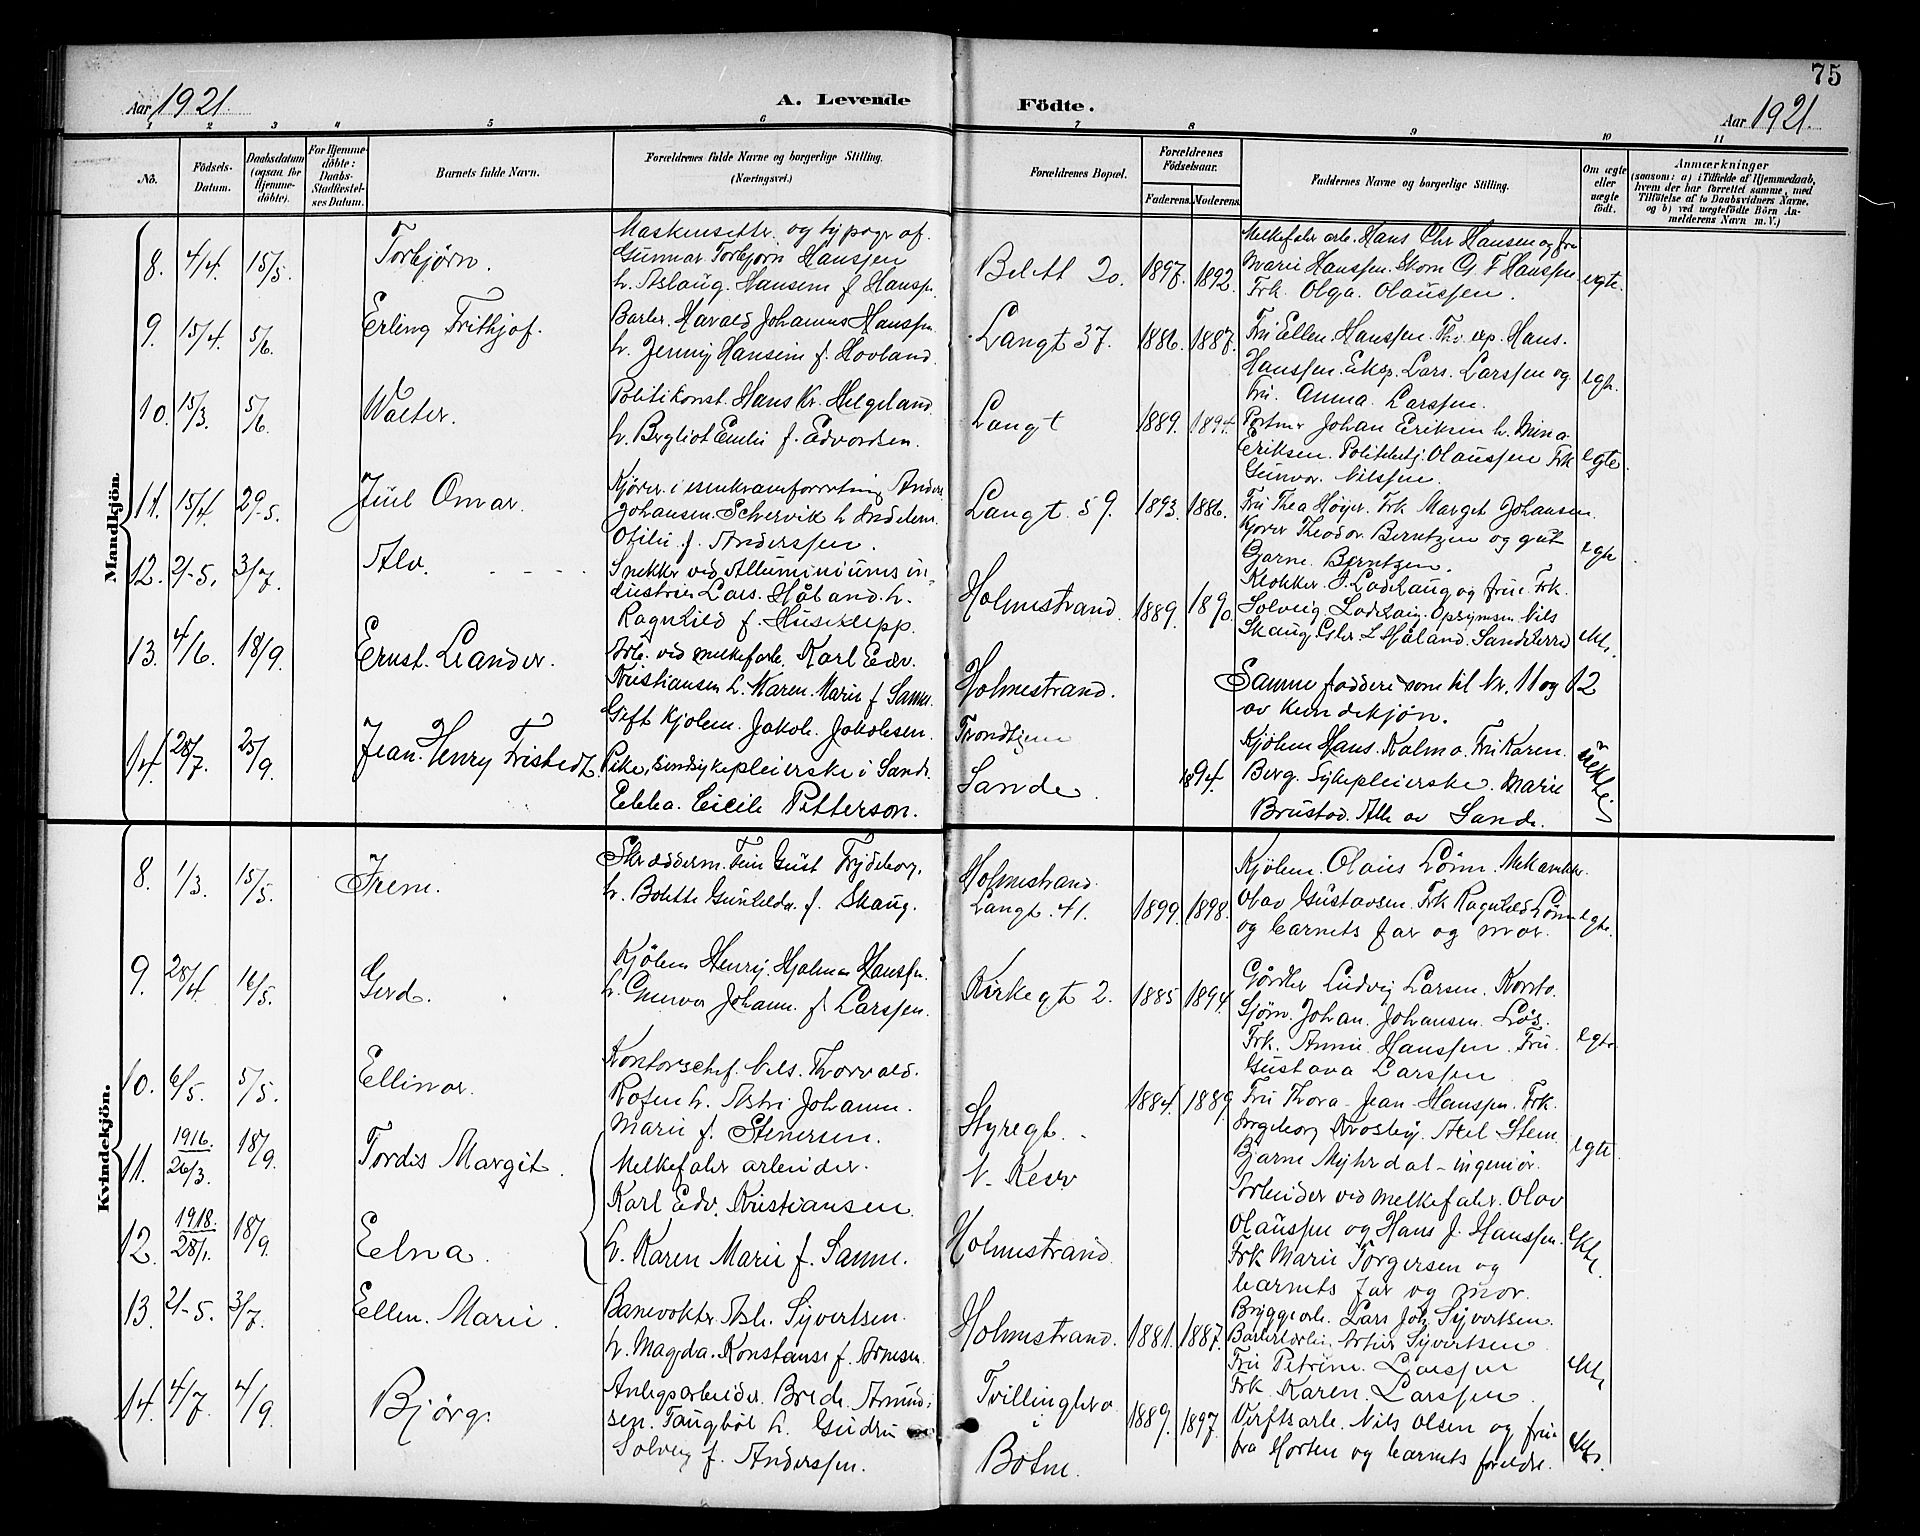 75
Aar 1921.
A. Levende Födte.
Aar 1921.
1 2 3 4 5 6 7 8 9 10 11
No.
Födsels-Datum.
Daabsdatum (ogsaa for Hjemme-döbte).
For Hjemme-döbte: Daabs-Stadfæstel-ses Datum.
Barnets fulde Navn.
Forældrenes fulde Navne og borgerlige Stilling.
(Næringsvei.)
Forældrenes Bopæl.
Forældrenes Födselsaar.
Faderens. Moderens.
Faddernes Navne og borgerlige Stilling.
Om ægte eller uægte født.
Anmærkninger
(saasom: a) i Tilfælde af Hjemmedaab,
hvem der har forrettet samme, med
Tilföielse af to Daabsvidners Navne,
og b) ved uægtefödte Börn An-
melderens Navn m. V.)
Mandkjön.
8. 4/4. 15/5. Torbjørn.
Maskinsetter og typogr af.
Gunnar Torbjørn Hanssen
h. Aslaug. Hansine f Hanss.
Beltt 20. 1897. 1892.
Melkefabr arb. Hans Chr Hansen og fru
Marie Hanssen. Skom G F Hanssen
Frk. Olga. Olaussen.
egte.
9. 15/4. 5/6. Erling Frithjof.
Barber. Harald Johannes Hanssen
h. Jenny Hansine f. Hovland.
Langt 37. 1886. 1887.
Fru Ellen Hanssen. Hans.
Hanssen. Eksp. Lars. Larssen og
Fru. Anna. Larssen.
egte.
10. 15/3. 5/6. Walter.
Politikonst. Hans Kr. Helgeland.
h. Bergliot Emilie f. Edvardsen.
Langt 1889. 1894.
Portner Johan Eriksen h. Mina
Eriksen. Politibetj. Olaussen Frk
Gunvor. Nilssen.
egte.
11. 15/4. 29-5. Juul Omar.
Kjører i isenkramforretning Anders
Johansen. Schervik h
Otilie f. Anderssen.
Langt. 59. 1893. 1886.
Fru Thea Høyer. Frk Marget Johansen
Kjører Theodor Berntzen og gut
Bjarne. Berntzen.
egte
12. 21-5. 3/7. Alv.
Snekker ved Alluminiums in-
dustrien Lars. Håland. h.
Ragnhild f. Huseklepp.
Holmestrand. 1889. 1890.
Klokker. J. Ladehaug og frue Frk.
Solveig. Ladehaug. Opsynsm Nils
Skaug. L Håland. Sandsverd
ekte.
13. 4/6. 18/9. Ernst. Leander.
Arb. ved melkefabr. Karl Edv.
Kristiansen h. Karen. Marie f Sanne.
Holmestrand.
Samme faddere som til nr. 11 og 12
av kvindekjøn.
14. 28/7. 25/9. Jean. Henry Tristedt.
Gift Kjøbm. Jakob. Jakobsen.
Pike, sindsykepleierske i Sande
Ebba. Cicile Petterson.
Trondhjem
Sande. 1894.
Kjøbm Hans. Kalmo. Fru Karen.
Berg. Sykepleierske. Marie
Brustad. Alle av Sande.
uekte
Kvindekjön.
8. 1/3. 15/5. Irene.
Skrædderm. Finn Gust Frydeborg.
h. Bolette Gunhilda f. Skaug.
Holmestrand.
Langt. 41. 1899. 1898.
Kjøbm. Olaus Lønn. Mekaniker.
Olav Gustavsen. Frk Ragnhild Lønn
og barnets far og mor.
egte.
9. 28/4. 16/5. Gerd.
Kjøbm Henry. Hjalmar Hanssen.
h. Gunvor Johann. f. Larssen.
Kirkegt 2. 1885. 1894.
Gårdbr Ludvig Larsen.
Sjøm. Johan. Johansen.
Frk. Annie. Hanssen. Fru.
Gustava Larssen
egte.
10. 6/5. 5/5. Ellinor.
Kontorschef. Nils. Thorvald.
h. Astri Johanne.
Marie f. Stenersen.
Styregt. 1884. 1889.
Fru Thora Jean-Hanssen. Frk.
Ingeborg Krosby. Axel Sten
Bjarne Myhrdal-ingeniør.
egte.
11. 1916. 26/3. 18/9. Tordis Margit.
12. 1918. 28/1. 18/9. Edna.
Melkefabr arbeider.
Karl Edv. Kristiansen
h. Karen Marie f. Sanne.
Holmestrand.
Arbeider ved melkefabr. Olav
Olaussen og Hans J. Hanssen.
Frk Marie Torgersen og
barnets far og mor.
Ekte.
13. 21-5. 3/7. Ellen. Marie.
Banevokter Syvertsen.
h. Magda. Konstanse f. Arnesen.
Holmestrand. 1881. 1887.
Bryggearb. Lars Joh. Syvertsen.
Artur Syvertsen
Fru Petrine. Larssen
Frk. Karen. Larssen.
ekte
14. 4/7. 4/9. Bjørg.
Anlegsarbeider. Brede. Amund-
sen. Taugbøl h. Gudrun
Solveig f. Anderssen.
Tvillingbro
i
Botne. 1889. 1897.
Verftsarb. Nils Olsen og frue
fra Horten og barnets foreldre.
ekte.